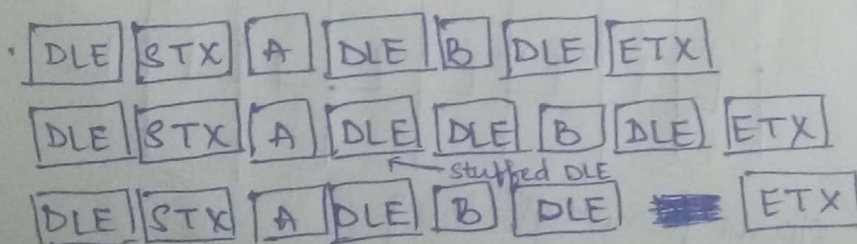 DLE STX A DLE B DLE ETX
DLE STX A DLE DLE B DLE ETX
stuffed DLE
DLE STX A DLE B DLE ETX